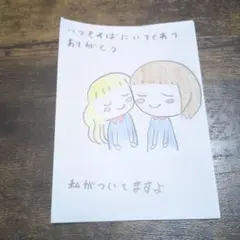 いつもそばにいてくれて
ありがとう
私がついてますよ